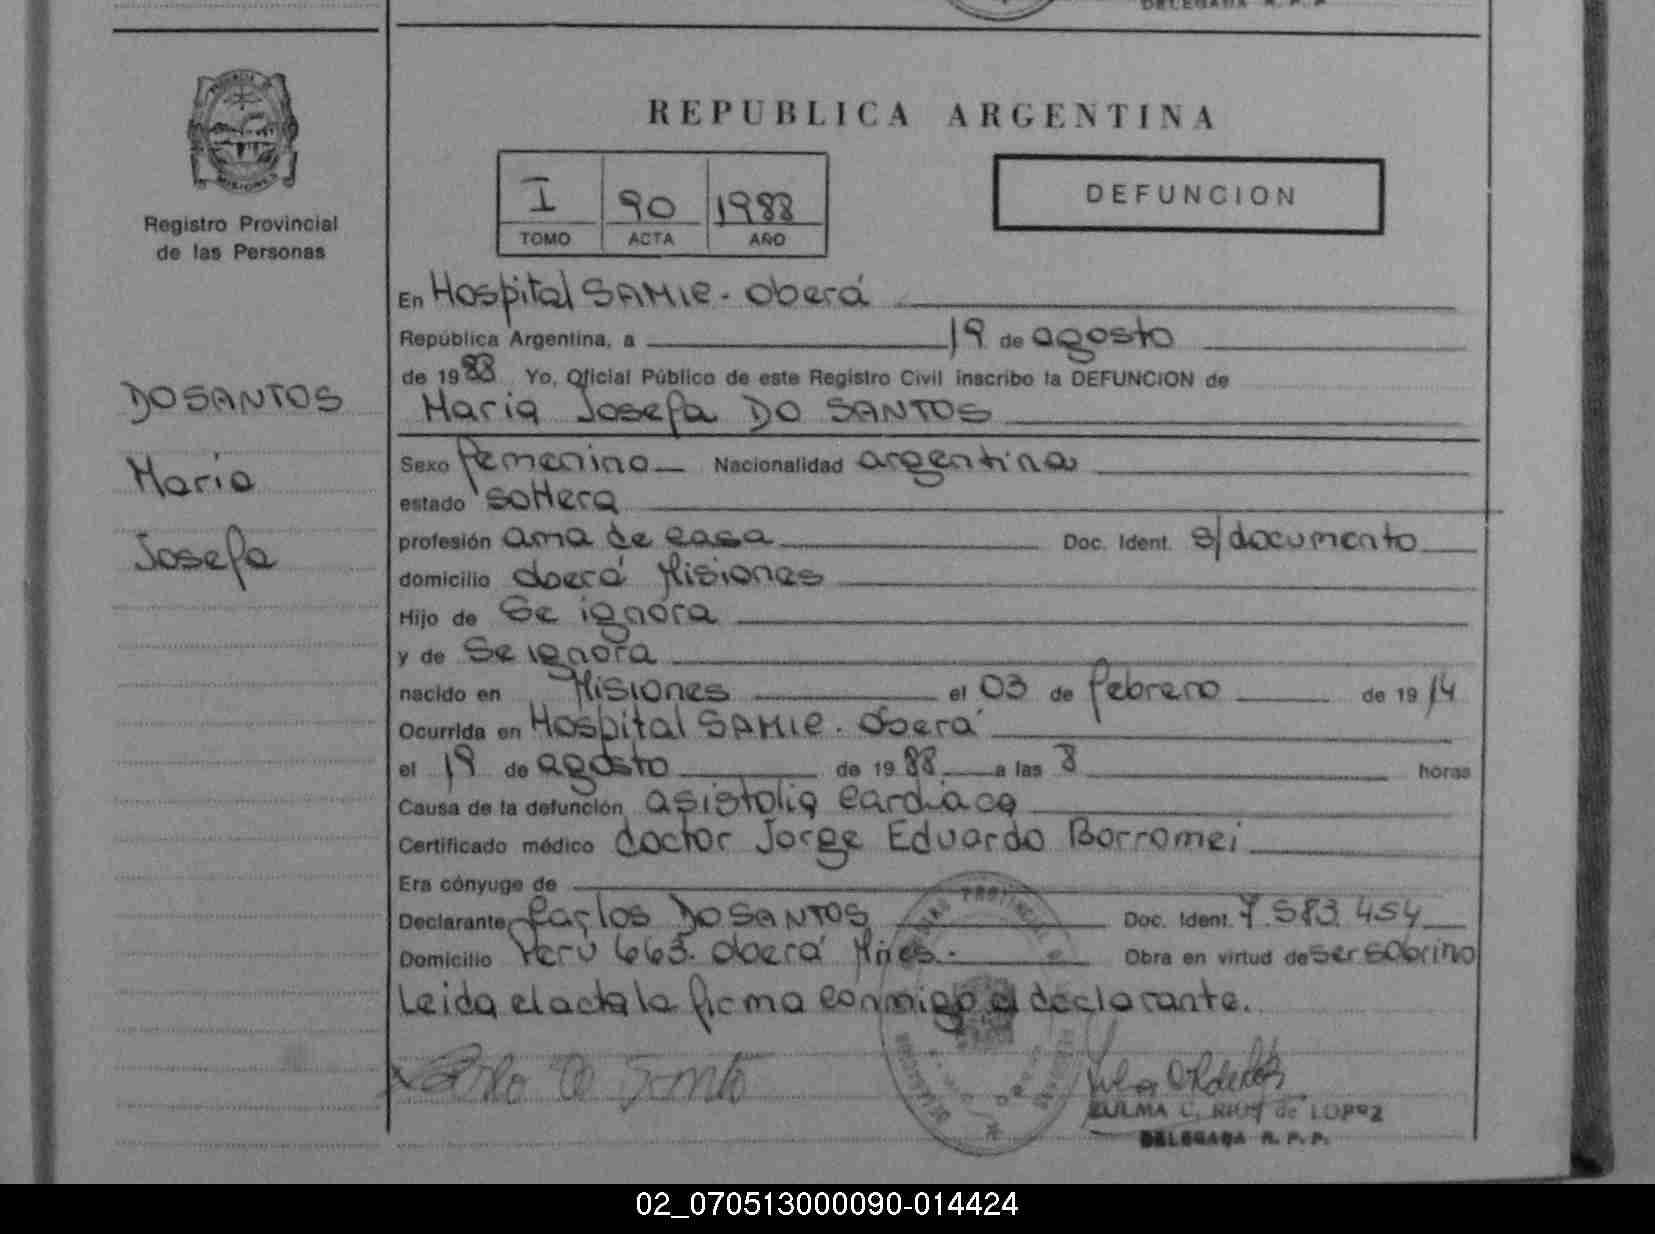 DELEGADA R. P. P.
PROVINCIA
MISIONES
Registro Provincial
de las Personas
DO SANTOS
Maria
Josefa
REPUBLICA ARGENTINA
I 90 1988
TOMO ACTA AÑO
DEFUNCION
En Hospital SAMIC - Oberá
República Argentina, a 19 de agosto
de 1988 Yo, Oficial Público de este Registro Civil inscribo la DEFUNCION de
Maria Josefa DO SANTOS
Sexo femenino Nacionalidad argentina
estado soltera
profesión ama de casa Doc. Ident. s/documento
domicilio Oberá Misiones
Hijo de Se ignora
y de Se ignora
nacido en Misiones el 03 de febrero de 1914
Ocurrida en Hospital SAMIC - Oberá
el 19 de agosto de 1988 a las 8 horas
Causa de la defunción asistolia cardiaca
Certificado médico doctor Jorge Eduardo Borromei
Era cónyuge de
Declarante Carlos DO SANTOS Doc. Ident. 7.583.454
Domicilio Perú 663. Oberá Mnes.- Obra en virtud de ser sobrino
Leida el acta la firma conmigo el declarante.
ZULMA C. RIOS de LOPEZ
DELEGADA R. P. P.
02_070513000090-014424